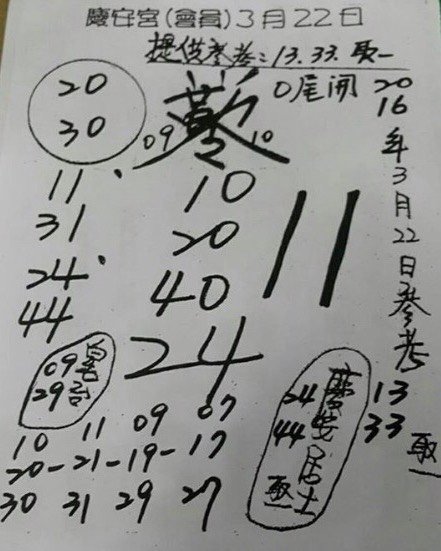 慶安宮(會員)3月22日
提供參考:13.33.取一
0尾開
20
30
09 10
11 10
31 20
24 40
44 24
11
2016年3月22日參考
13
33
取一
09
29
10 11 09 07
20-21-19-17
30 31 29 27
慶安居士
24
44
取一